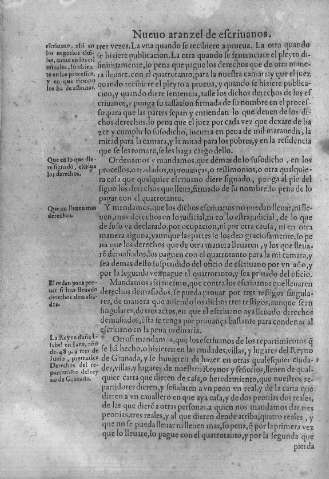 Nueuo aranzel de escriuanos.
tres vezes. La vna quando se recibiere a prueua. La otra quando
se hiziere publicacion. La otra quando se sentenciare el pleyto di-
finitiuamente, so pena que pague los derechos que de otra mane-
ra lleuare, con el quatrotanto, para la nuestra camara: y que el juez
quando recibiere el pleyto a prueua, y quando hiziere publica-
cion, y quando diere sentencia, tasse los dichos derechos de los es
criuanos, y ponga su tassacion firmada de su nombre en el proces-
so para que las partes sepan y entiendan lo que deuen de los di-
chos derechos, so pena que el juez por cada vez que dexare de ha
zer y cumplir lo susodicho, incurra en pena de mil marauedis, la
mitad para la camara, y la mitad para los pobres, y en la residencia
que se les tomare, se les haga cargo dello.
Que en lo que die
re signado, assiente
los derechos.
Ordenamos y mandamos, que demas de lo susodicho, en los
processos, o traslados, y prouanças, o testimonios, o otra qualquie
ra cosa que qualquier escriuano diere signado, ponga al pie del
signo los derechos que lleua, firmado de su nombre, so pena de lo
pagar con el quatrotanto.
Que no lleuen mas
derechos.
Y mandamos, que los dichos escriuanos no puedan lleuar, ni lle-
uen, mas derechos en lo judicial, ni en lo extrajudicial, de lo que
de suso va declarado, por ocupacion, ni por otra causa, ni en otra
manera alguna, y aunque las partes se los den graciosamente, so pe
na que los derechos que de otra manera lleuaren, y los que lleua-
rē demasiados, los paguen con el quatrotanto para la mi camara, y
sea demas dello suspendido del oficio de escriuano por vn año, y
por la segunda vez pague el quatrotanto, y sea priuado del oficio.
Mandamos assi mismo, que contra los escriuanos que lleuaren
derechos demasiados, se pueda prouar por tres testigos singula-
res, de manera que auiendo los dichos tres testigos, aunque sean
singulares, de tres actos, en que el escriuano aya lleuado derechos
demasiados, esta se tenga por prouança bastante para condenar al
escriuano en la pena ordinaria.
Otrosi mandamos, que los escriuanos de los repartimientos q̄
se hā hecho, o hizieren en las ciudades, villas, y lugares del Reyno
de Granada, y se huuieren de hazer en otras qualesquier ciuda-
des, villas, y lugares de nuestros Reynos y señorios, lleuen de qual-
quier carta que dieren de casas, o heredamiento, que nuestros re-
partidores dieren, y señalaren a vn peon vn real, y de la carta que
dieren a vn cauallero en que aya casa, y de dos peonias dos reales,
de las que dierē a otras personas a quien nos mandamos dar tres
peonias, tres reales, y al que dieren desde arriba, quatro reales, y
que no se pueda lleuar ni lleuen mas, so pena, q̄ por la primera vez
que lo lleuare, lo pague con el quatrotanto, y por la segunda que
pierda